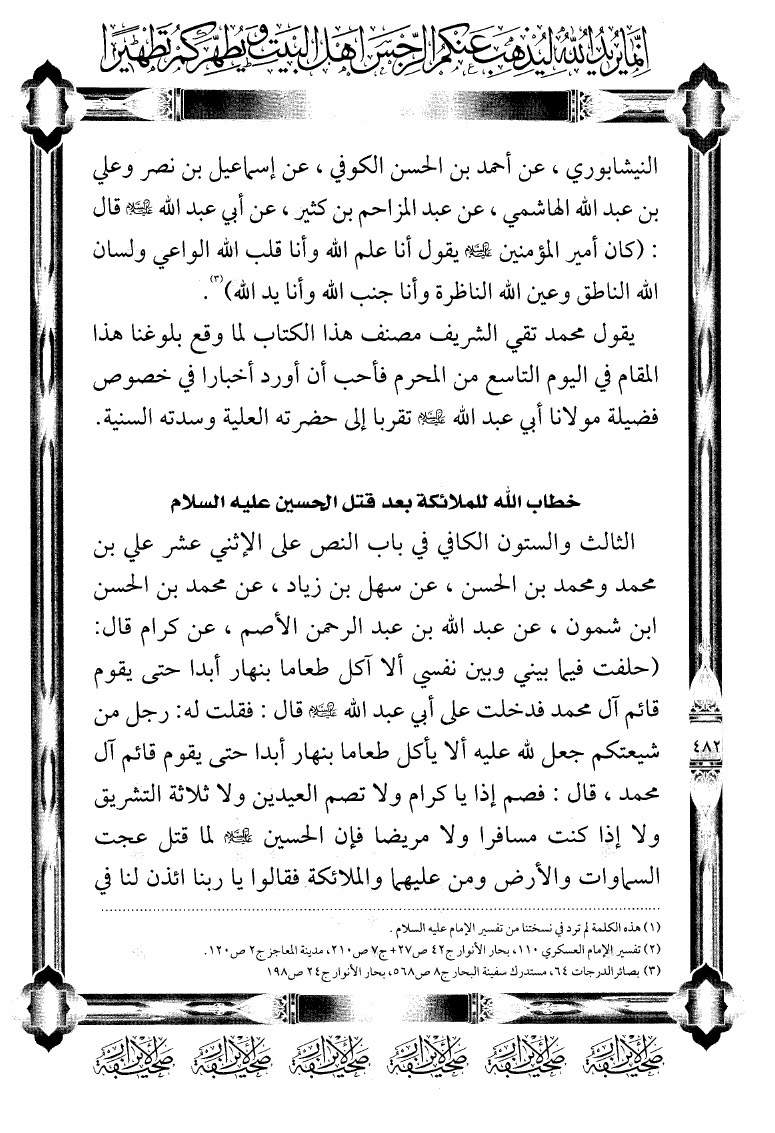 إنما يريد الله ليذهب عنكم الرجس أهل البيت ويطهركم تطهيرا
النيشابوري ، عن أحمد بن الحسن الكوفي ، عن إسماعيل بن نصر وعلي
بن عبد الله الهاشمي ، عن عبد المزاحم بن كثير ، عن أبي عبد الله عليه السلام قال
: (كان أمير المؤمنين عليه السلام يقول أنا علم الله وأنا قلب الله الواعي ولسان
الله الناطق وعين الله الناظرة وأنا جنب الله وأنا يد الله)(٣).
يقول محمد تقي الشريف مصنف هذا الكتاب لما وقع بلوغنا هذا
المقام في اليوم التاسع من المحرم فأحب أن أورد أخبارا في خصوص
فضيلة مولانا أبي عبد الله عليه السلام تقربا إلى حضرته العلية وسدته السنية.
خطاب الله للملائكة بعد قتل الحسين عليه السلام
الثالث والستون الكافي في باب النص على الإثني عشر علي بن
محمد ومحمد بن الحسن ، عن سهل بن زياد ، عن محمد بن الحسن
ابن شمون ، عن عبد الله بن عبد الرحمن الأصم ، عن كرام قال:
(حلفت فيما بيني وبين نفسي ألا آكل طعاما بنهار أبدا حتى يقوم
قائم آل محمد فدخلت على أبي عبد الله عليه السلام قال : فقلت له: رجل من
شيعتكم جعل لله عليه ألا يأكل طعاما بنهار أبدا حتى يقوم قائم آل
محمد ، قال : فصم إذا يا كرام ولا تصم العيدين ولا ثلاثة التشريق
ولا إذا كنت مسافرا ولا مريضا فإن الحسين عليه السلام لما قتل عجت
السماوات والأرض ومن عليهما والملائكة فقالوا يا ربنا ائذن لنا في
٤٨٢
(١) هذه الكلمة لم ترد في نسختنا من تفسير الإمام عليه السلام .
(٢) تفسير الإمام العسكري ١١٠، بحار الأنوار ج٤٢ ص٢٧+ ج٧ ص٢١٠، مدينة المعاجز ج٢ ص١٢٠.
(٣) بصائر الدرجات ٦٤، مستدرك سفينة البحار ج٨ ص٥٦٨، بحار الأنوار ج٢٤ ص١٩٨
صحيفة الأبرار صحيفة الأبرار صحيفة الأبرار صحيفة الأبرار صحيفة الأبرار صحيفة الأبرار